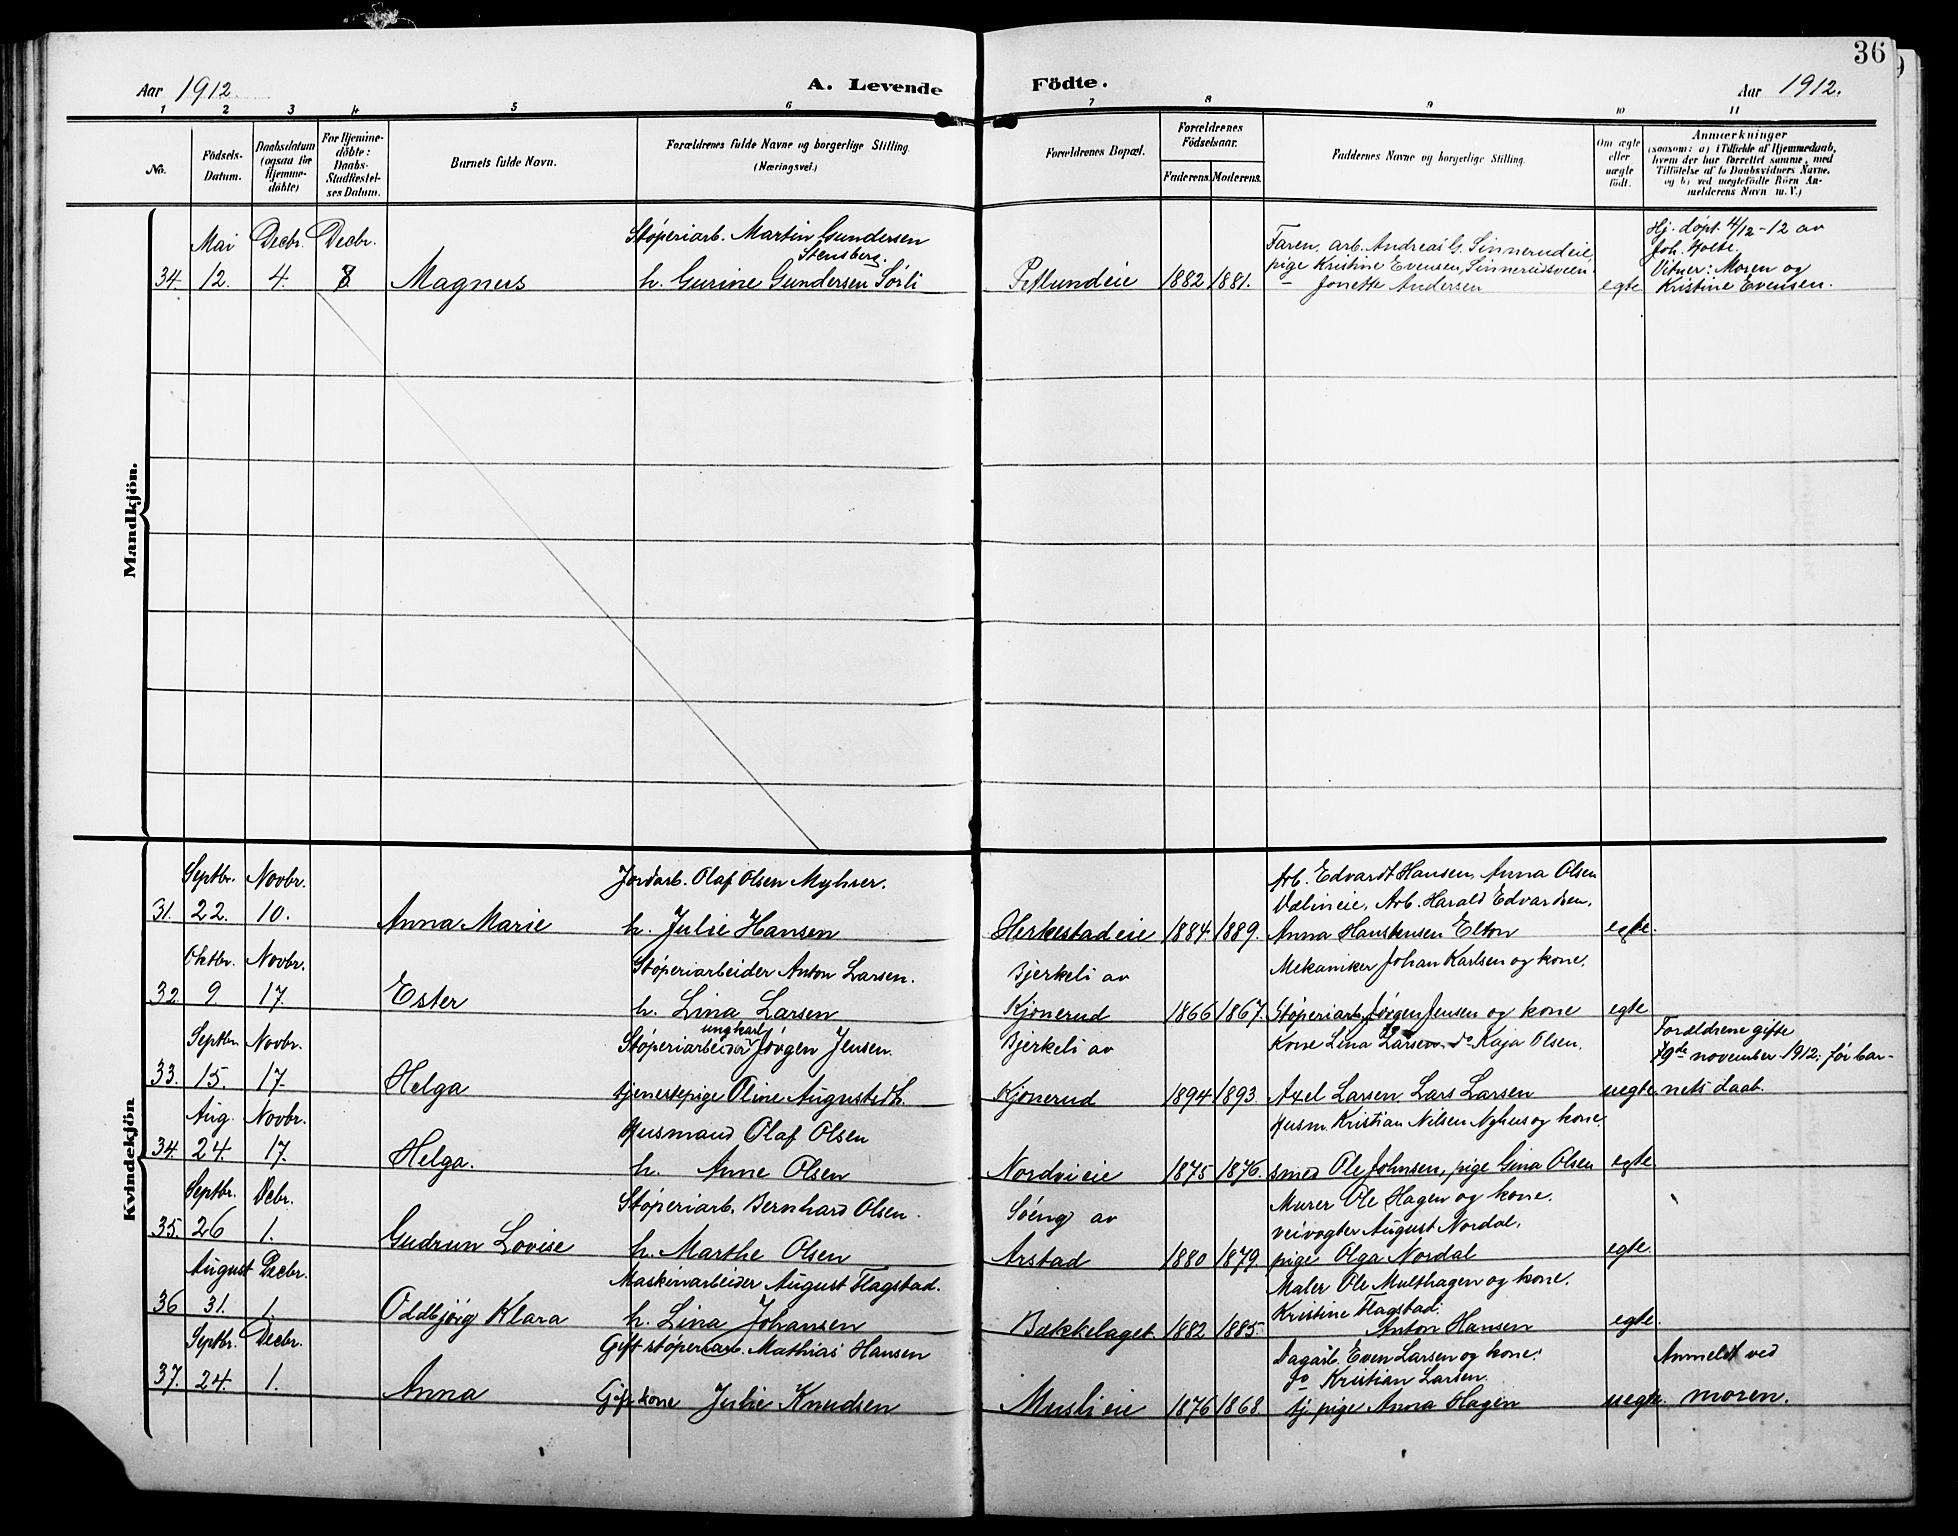 36
Aar 1912.
A. Levende Födte.
Aar 1912.
1 2 3 4 5 6 7 8 9 10 11
No.
Födsels-Datum.
Daabsdatum (ogsaa før Hjemme-døbte)
For Hjemme-døbte: Daabs-Stadfæstel-ses Datum.
Barnets fulde Navn.
Forældrenes fulde Navne og borgerlige Stilling (Næringsvei.)
Forældrenes Bopæl.
Forældrenes Födselsaar.
Faderens. Moderens.
Faddernes Navne og borgerlige Stilling.
Om ægte eller uægte födt.
Anmærkninger
(saasom: a) i Tilfælde af Hjemmedaab,
hvem der har forrettet samme, med
Tilföielse af to Daabsvidners Navne,
og b) ved uægtefödte Börn An-
melderens Navn m. V.)
Mandkjön.
Mai Decbr. Decbr. Støperiarb. Martin Gundersen Stensberg.
34 12. 4. 8 Magnus h. Gurine Gundersen Sørli
Petlundeie 1882 1881.
Faren, arb. Andreas G. Sinnerudeie,
pige Kristine Evensen, Sinnerudsveen
do Jonette Andersen
egte
Hj. døpt 4/12-12 av
Joh. Holte.
Vitner: Moren og
Kristine Evensen.
Kvindekjön
Septbr. Novbr. Jordarb. Olaf Olsen Myhrer.
31. 22. 10. Anna Marie h. Julie Hansen
Herkestadeie 1884 1889.
Arb. Edvardt Hansen, Anna Olsen
Dælineie, Arb. Harald Edvardsen,
Anna Hanstensen Elton
egte.
Oktbr. Novbr. Støperiarbeider Anton Larsen.
32. 9. 17. Ester h. Lina Larsen
Bjerkeli av
Kjonerud 1866 1867.
Mekaniker Johan Karlsen og kone.
Støperiarb. Jörgen Jensen og kone
egte
Septbr. Novbr. ungkarl
Støperiarbeider Jörgen Jensen.
33. 15. 17. Helga tjenestepige Oline Augusta L.
Bjerkeli av
Kjonerud 1894 1893
Kone Lina Larsen, do Kaja Olsen,
Axel Larsen Lars Larsen
uegte.
Forældrene gifte
29de november 1912; før bar-
nets daab.
Aug. Novbr. Husmand Olaf Olsen
34. 24. 17. Helga. h. Anne Olsen
Nordvieie 1875 1876.
Husm. Kristian Nilsen Nyhus og kone.
smed Ole Johnsen, pige Gina Olsen
egte.
Septbr. Dcbr. Støperiarb. Bernhard Olsen.
35. 26 1. Gudrun Lovise h. Marthe Olsen
Søeng av
Arstad 1880 1879.
Murer Ole Hagen og kone.
veivogter August Nordal,
pige Olga Nordal
egte.
August Decbr. Maskinarbeider August Flagstad.
36 31. 1. Oddbjörg Klara h. Lina Johansen
Bækkelaget 1882 1885.
Maler Ole Multhagen og kone.
Kristine Flagstad.
Anton Hansen
egte.
Septbr. Decbr. Gift støperiarb. Mathias Hansen
37. 24. 1. Anna Gift kone Julie Knudsen
Muslieie 1876 1868
Dagarb. Even Larsen og kone.
do Kristian Larsen.
tj. pige Anna Hagen
uegte.
Anmeldt ved
moren.